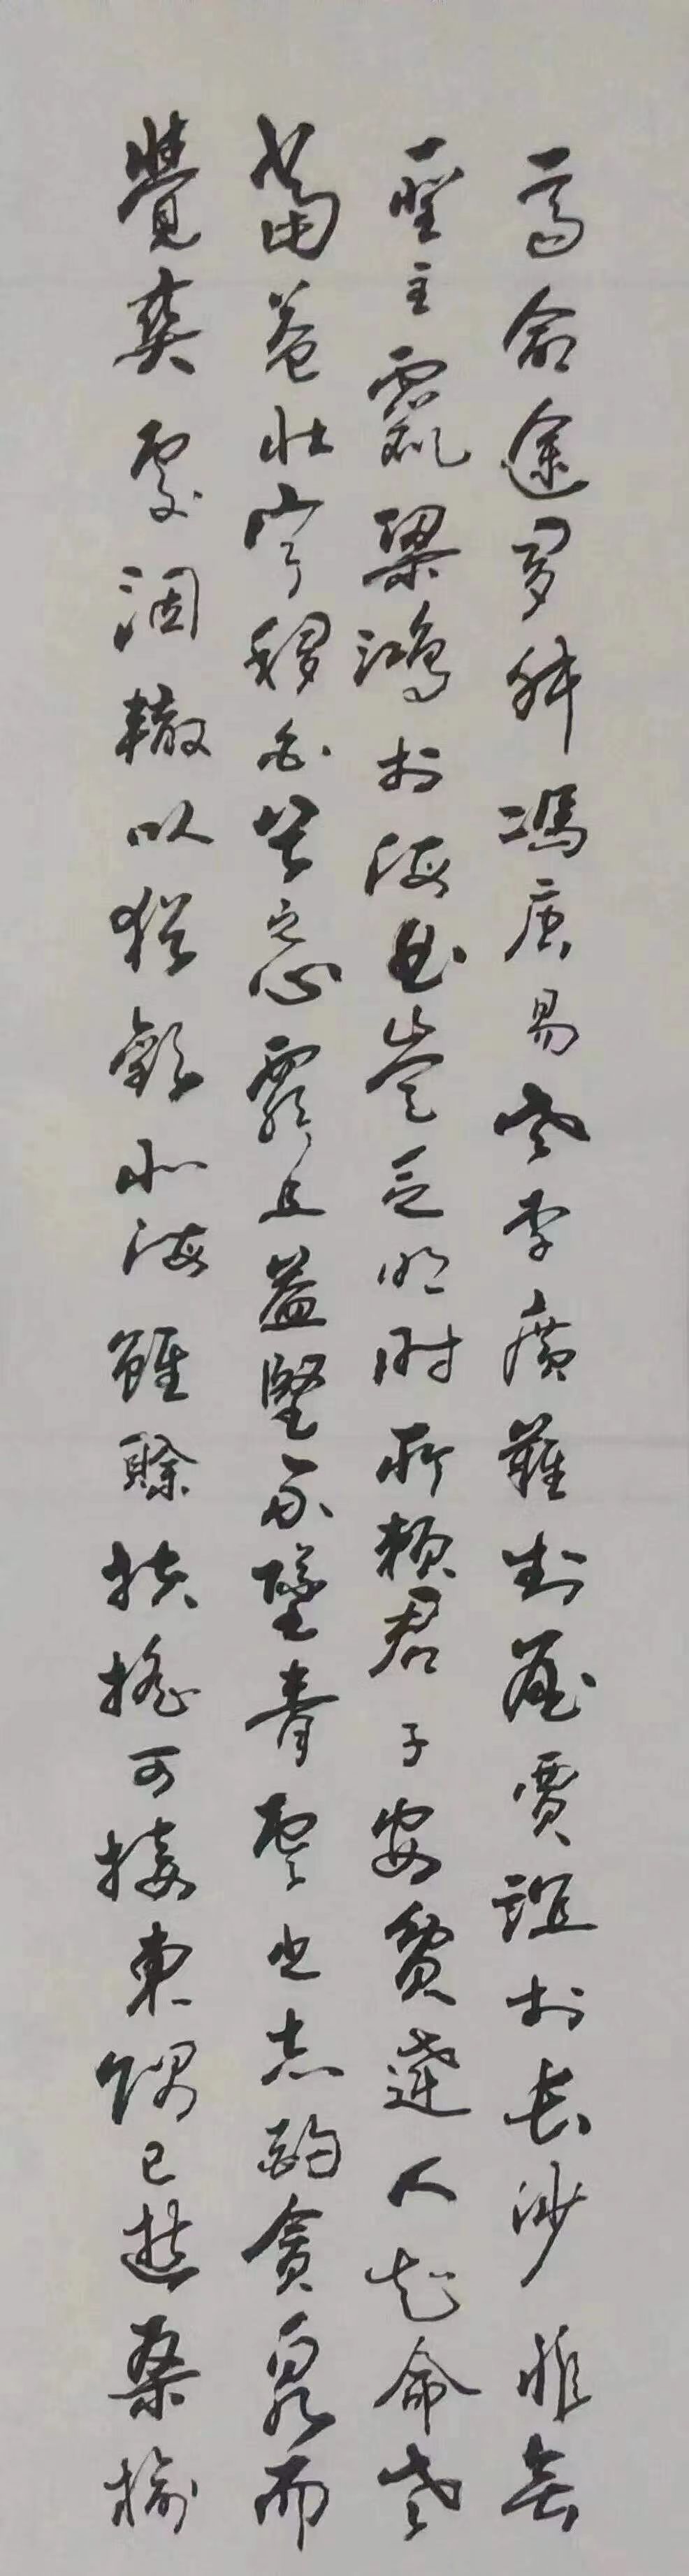 焉命途多舛馮唐易老李廣難封屈賈誼於長沙非無
聖主竄梁鴻於海曲豈乏明時所賴君子安貧達人知命老
當益壯寧移白首之心窮且益堅不墜青雲之志酌貪泉而
覺爽處涸轍以猶歡北海雖賒扶搖可接東隅已逝桑榆